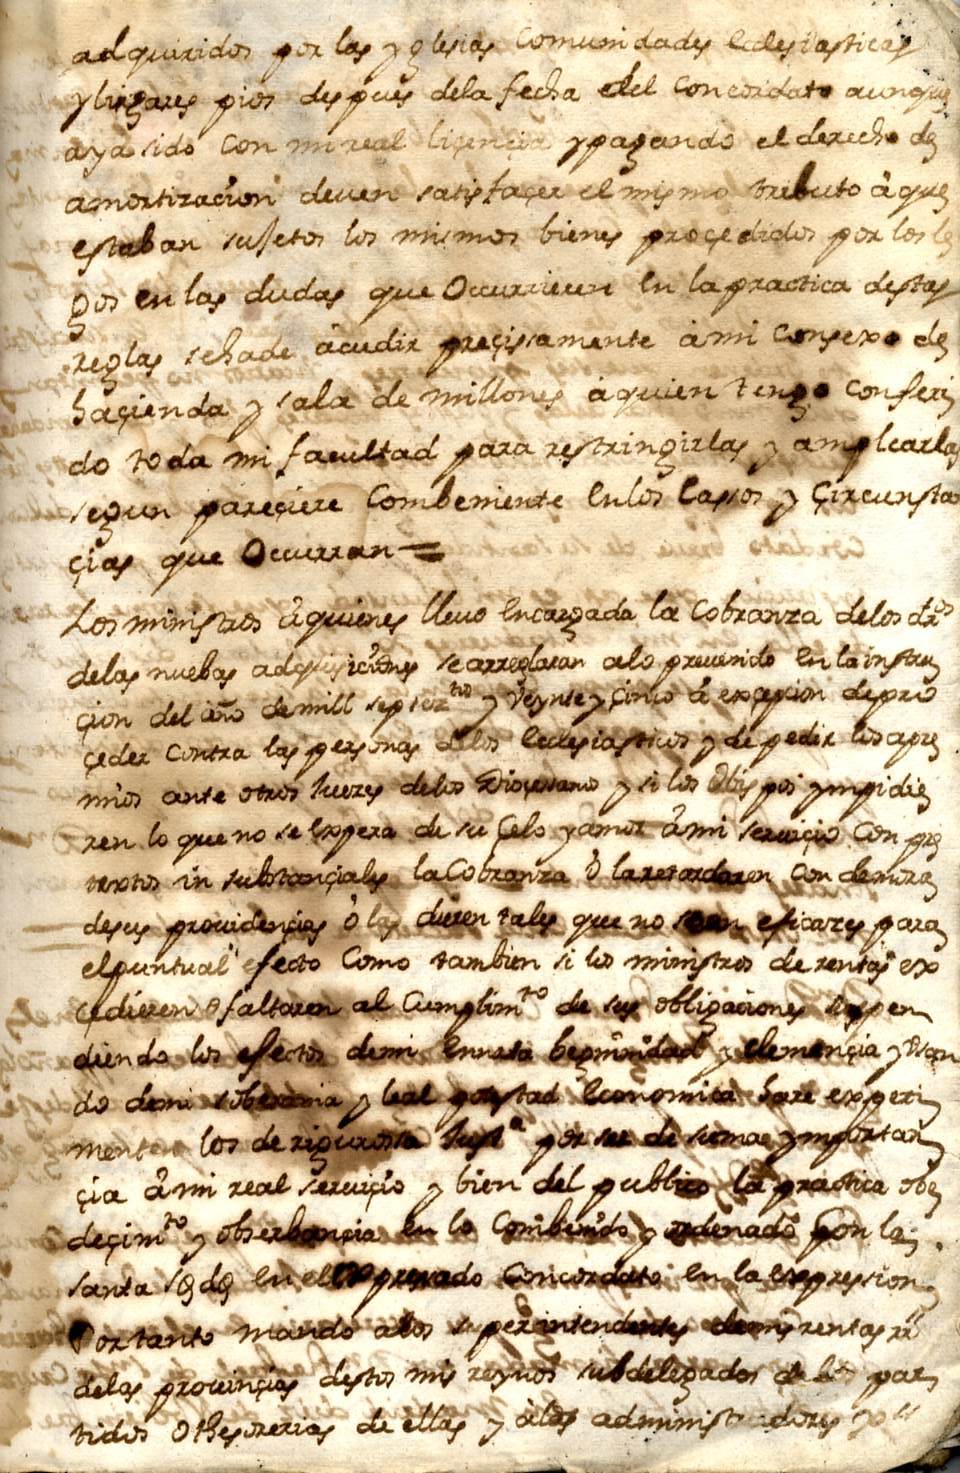 adquiridos por las yglesias Comunidades Eclesiasticas
y lugares pios despues dela fecha del Concordato aunque
aya sido Con mi real liçençia y pagando el derecho de
amortizacion deuen satisfaçer el mismo tributo â que
estaban sujetos los mismos bienes proçedidos por los le
gos en las dudas que Ocurrieren En la practica destas
reglas se ha de âcudir preçissamente â mi Consexo de
haçienda y sala de millones â quien tengo Conferi
do toda mi facultad para restringirlas y amplearlas
segun pareçiere Combeniente En los Cassos y Çircunsta
çias que Ocurran =
Los ministros âquienes lleuo Encargada la Cobranza delos dros
delas nuebas adquisiciones se arreglaran alo preuenido En la instru
çion del año de mill setectos y Veynte y çinco â exçepcion de pro
çeder Contra las personas delos Eclesiasticos y de pedir los apre
mios ante otros Juezes delos Dioçesano y si los Obispos ympidie
ren lo que no se Expera de su Çelo y amor â mi seruiçio Con pre
textos in substançiales la Cobranza ô la retardaren Con demora
desus prouidençias ô las dieren tales que no sean eficazes para
el puntual efecto Como tambien si los ministros de rentas ex
çedieren o faltaren al Cumplimto de sus obligaciones suspen
diendo los efectos de mi Ennata begninidad y elemençia y Usan
do demi soberania y leal potestad Economica hare experi
menten los de rigurossa Justa por ser de suma ymportan
çia â mi real seruiçio y bien del publico la practica obe
deçimto y obserbançia en lo Combenido y ordenado por la
santa sede En el Expresado Concordato En la Expression
Por tanto mando alos superintendentes demis rentas rs
delas prouinçias destos mis reynos subdelegados de los par
tidos o thesorerias de ellas y âlos administradores